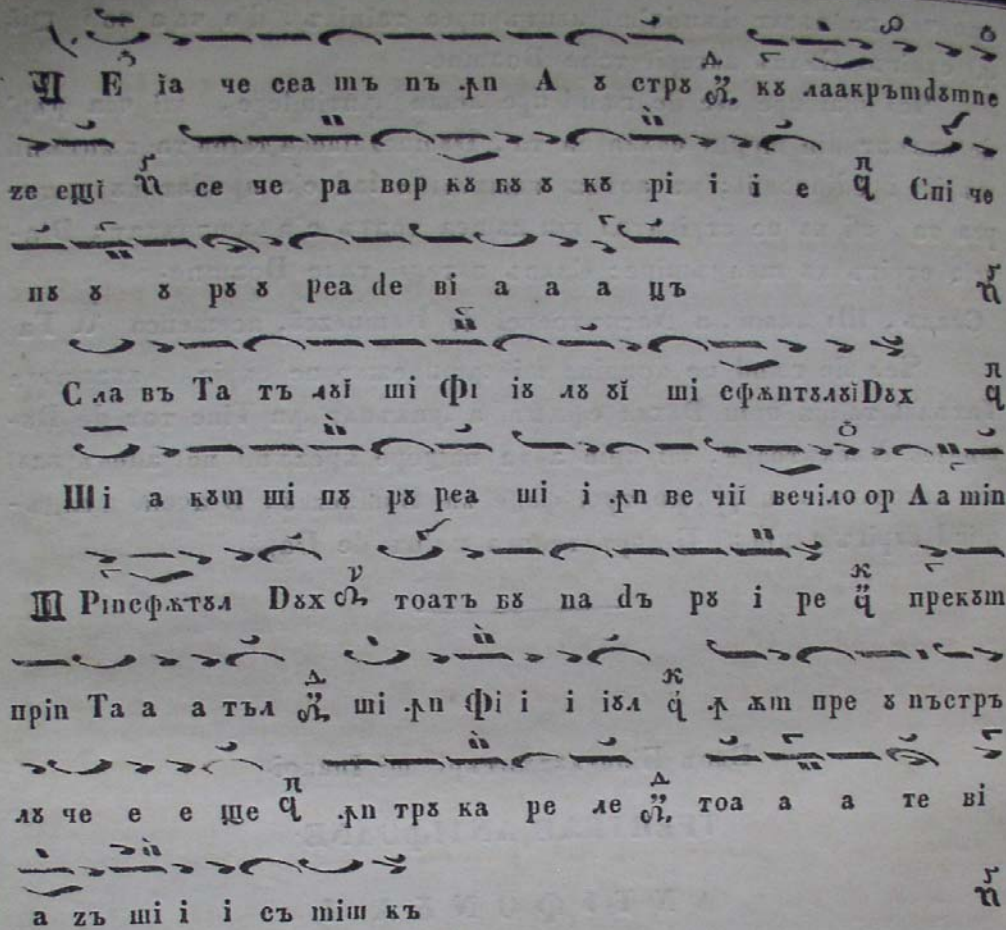 Ч Е їа че сеа mъ nъ .ꙟn А ꙋ стрꙋ кꙋ лаакръmdꙋmne
zе ещї се че ра вор кꙋ бꙋ ꙋ кꙋ рі і і е Спі че
пꙋ ꙋ ꙋ рꙋ ꙋ реа de ві а а а цъ
С ла въ Та тъ лꙋї ші Фі іꙋ лꙋ ꙋї ші сфѫnтꙋлꙋїDꙋх
Ші а кꙋm ші пꙋ рꙋ реа ші і .ꙟn ве чїї вечілоор А а min
П Ріnсфѫтꙋл Dꙋх тоатъ бꙋ nа dъ рꙋ і ре прекꙋm
пріn Та а а тъл ші .ꙟn Фі і і іꙋл .ꙟ ѫm пре ꙋ nъстръ
лꙋ че е е ще .ꙟn трꙋ ка ре ле тоа а а те ві
а zъ ші і і съ mіш къ